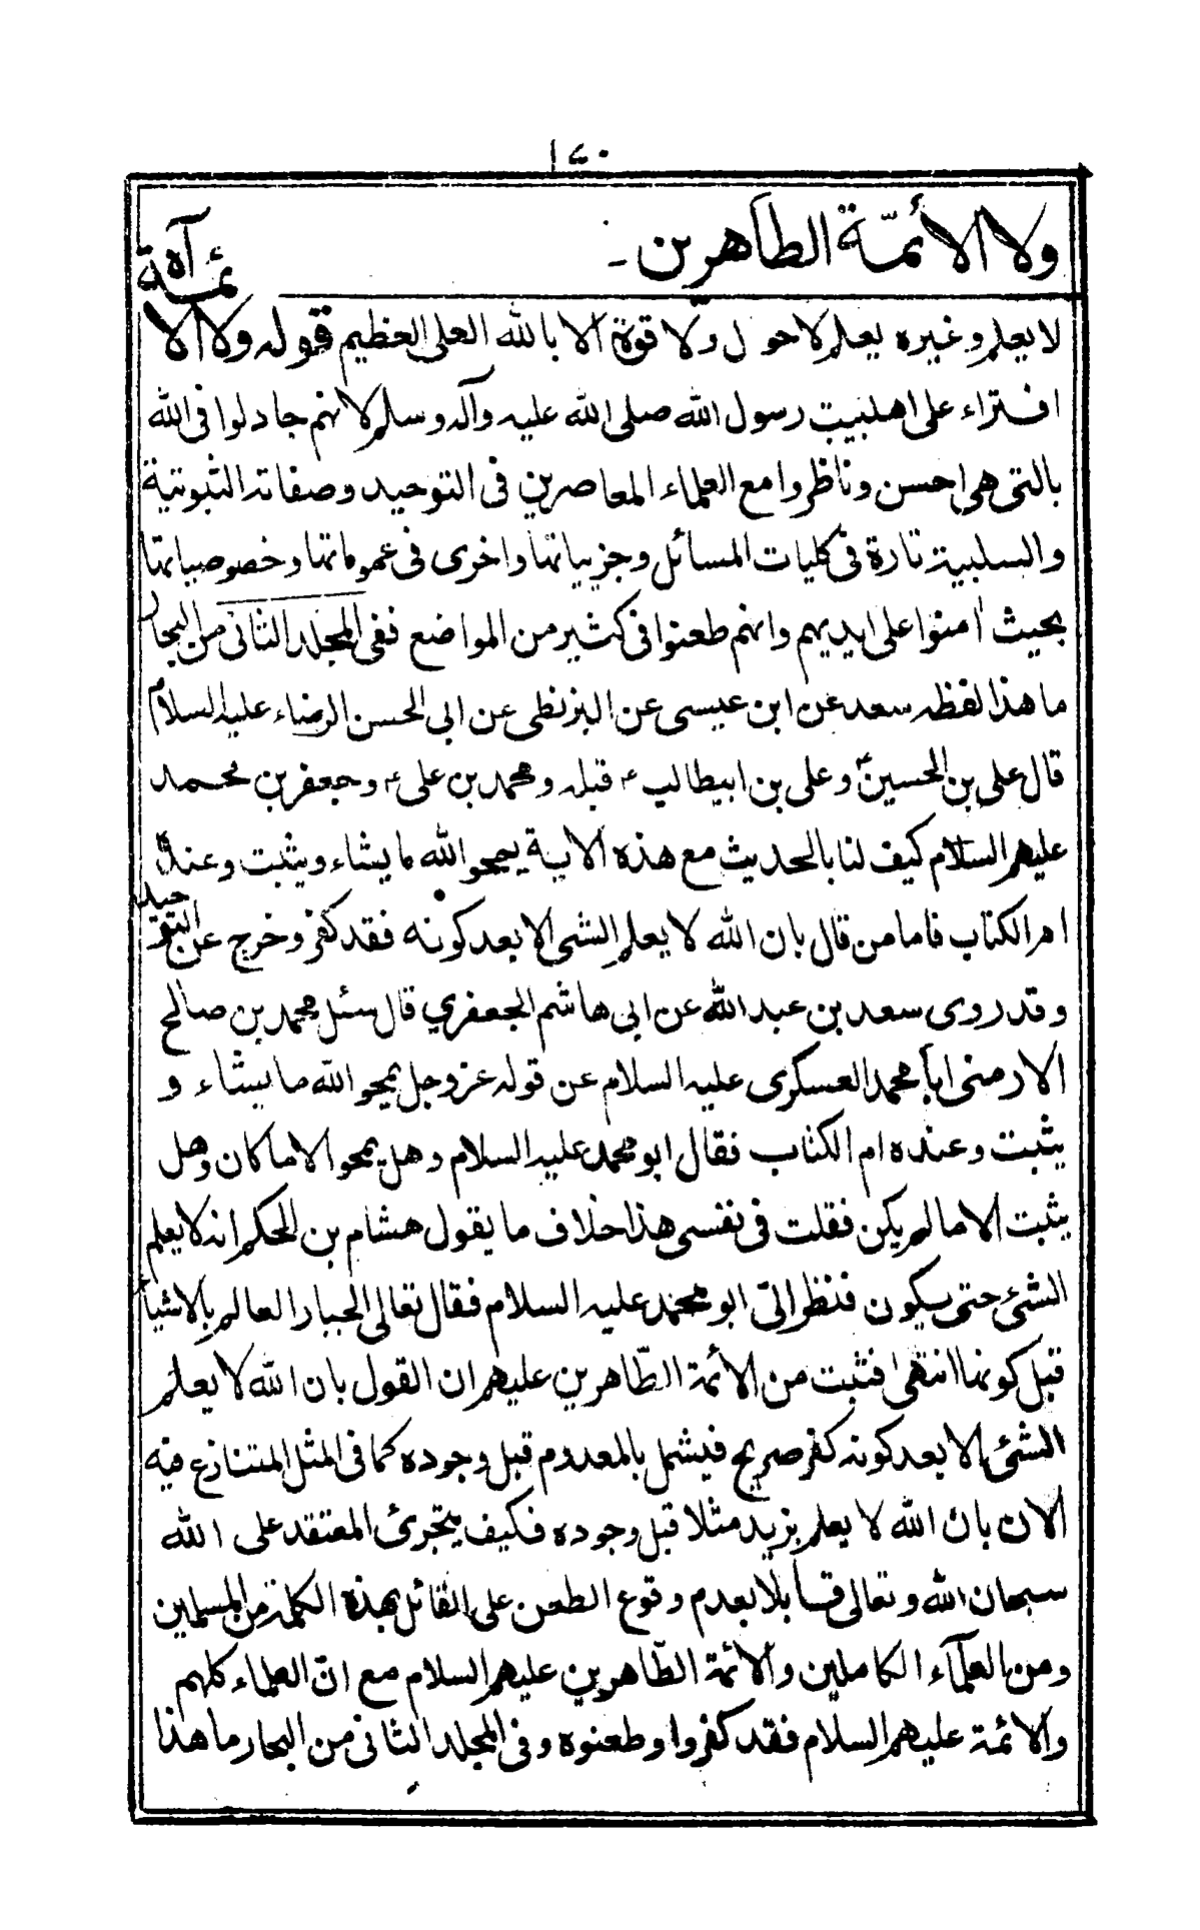 ١٤٠
ولا الأئمّة الطاهرين ـ
لا يعلم وغيره يعلم لا حول ولا قوة الا بالله العلى العظيم قوله ولا الائمة آه
افتراء على اهلبيت رسول الله صلى الله عليه وآله وسلم لانهم جادلوا فى الله
بالتى هى احسن وناظروا مع العلماء المعاصرين فى التوحيد وصفاته الثبوتية
والسلبية تارة فى كليات المسائل وجزيياتها واخرى فى عموماتها وخصوصياتها
بحيث امنوا على ايديهم وانهم طعنوا فى كثير من المواضع ففى المجلد الثانى من البحار
ما هذا لفظه سعد عن ابن عيسى عن البزنطى عن ابى الحسن الرضاء عليه السلام
قال على بن الحسينؑ وعلى بن ابيطالب ؑ قبله ومحمد بن على ؑ وجعفر بن محمد
عليهم السلام كيف لنا بالحديث مع هذه الاية يمحو الله ما يشاء ويثبت وعنده
ام الكتاب فاما من قال بان الله لا يعلم الشى الا بعد كونه فقد كفر وخرج عن التوحيد
وقد روى سعد بن عبد الله عن ابى هاشم الجعفري قال سئل محمد بن صالح
الارمنى ابا محمد العسكرى عليه السلام عن قوله عز وجل يمحو الله ما يشاء و
يثبت وعنده ام الكتاب فقال ابو محمد عليه السلام وهل يمحو الا ما كان وهل
يثبت الا ما لم يكن فقلت فى نفسى هذا خلاف ما يقول هشام بن الحكم انه لا يعلم
الشئ حتى يكون فنظر الىّ ابو محمد عليه السلام فقال تعالى الجبار العالم بالاشياء
قبل كونها انتهى فثبت من الائمة الطّاهرين عليهم ان القول بان الله لا يعلم
الشئ الا بعد كونه كفر صريح فيشمل بالمعدوم قبل وجوده كما فى المثل المتنازع فيه
الان بان الله لا يعلم بزيد مثلا قبل وجوده فكيف يتجرئ المعتقد على الله
سبحان الله وتعالى قابلا بعدم وقوع الطعن على القائل بهذه الكلمة من المسلمين
ومن العلمآء الكاملين والائمة الطّاهرين عليهم السلام مع انّ العلماء كلهم
والائمة عليهم السلام فقد كفروا وطعنوه وفى المجلد الثانى من البحار ما هذا